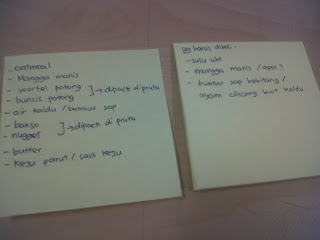 - oatmeal
- Mangga manis
- wortel potong
- buncis potong
→ dipack di pruta
- air kaldu / bumbu sop
- bakso
- nugget
→ dipack di pruta
- butter
- keju parut / saus keju
yg harus dibeli:
- susu uht
- mangga manis / apel ?
- bumbu sop kambing /
ayam cincang buat kaldu